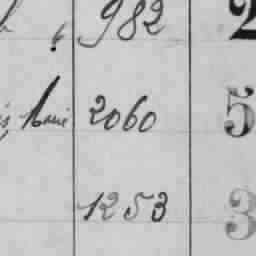 982 2
2060 5
1253 3